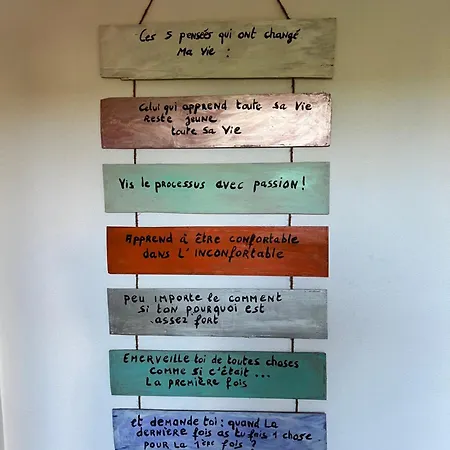 Ces 5 pensées qui ont changé
Ma vie :
Celui qui apprend toute sa vie
Reste jeune
toute sa vie
Vis le processus avec passion !
Apprend à être confortable
dans l'inconfortable
peu importe le comment
si ton pourquoi est
assez fort
Emerveille toi de toutes choses
comme si c'était ...
la première fois
et demande toi : quand la
dernière fois as tu fais 1 chose
pour la 1ère fois ?